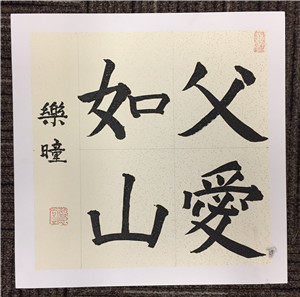 父愛
如山
樂曈